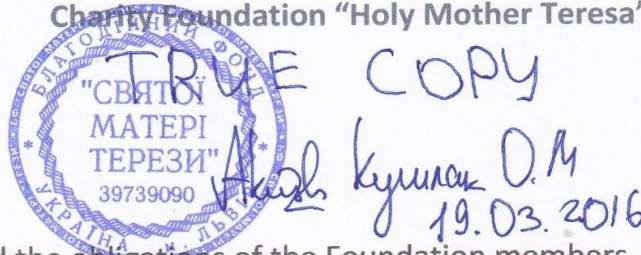 Charity Foundation “Holy Mother Teresa”
БЛАГОДІЙНИЙ ФОНД
TRUE COPY
"СВЯТОЇ
МАТЕРІ
ТЕРЕЗИ"
39739090
УКРАЇНА
О.М
19.03.2016
the obligations of the Foundation members